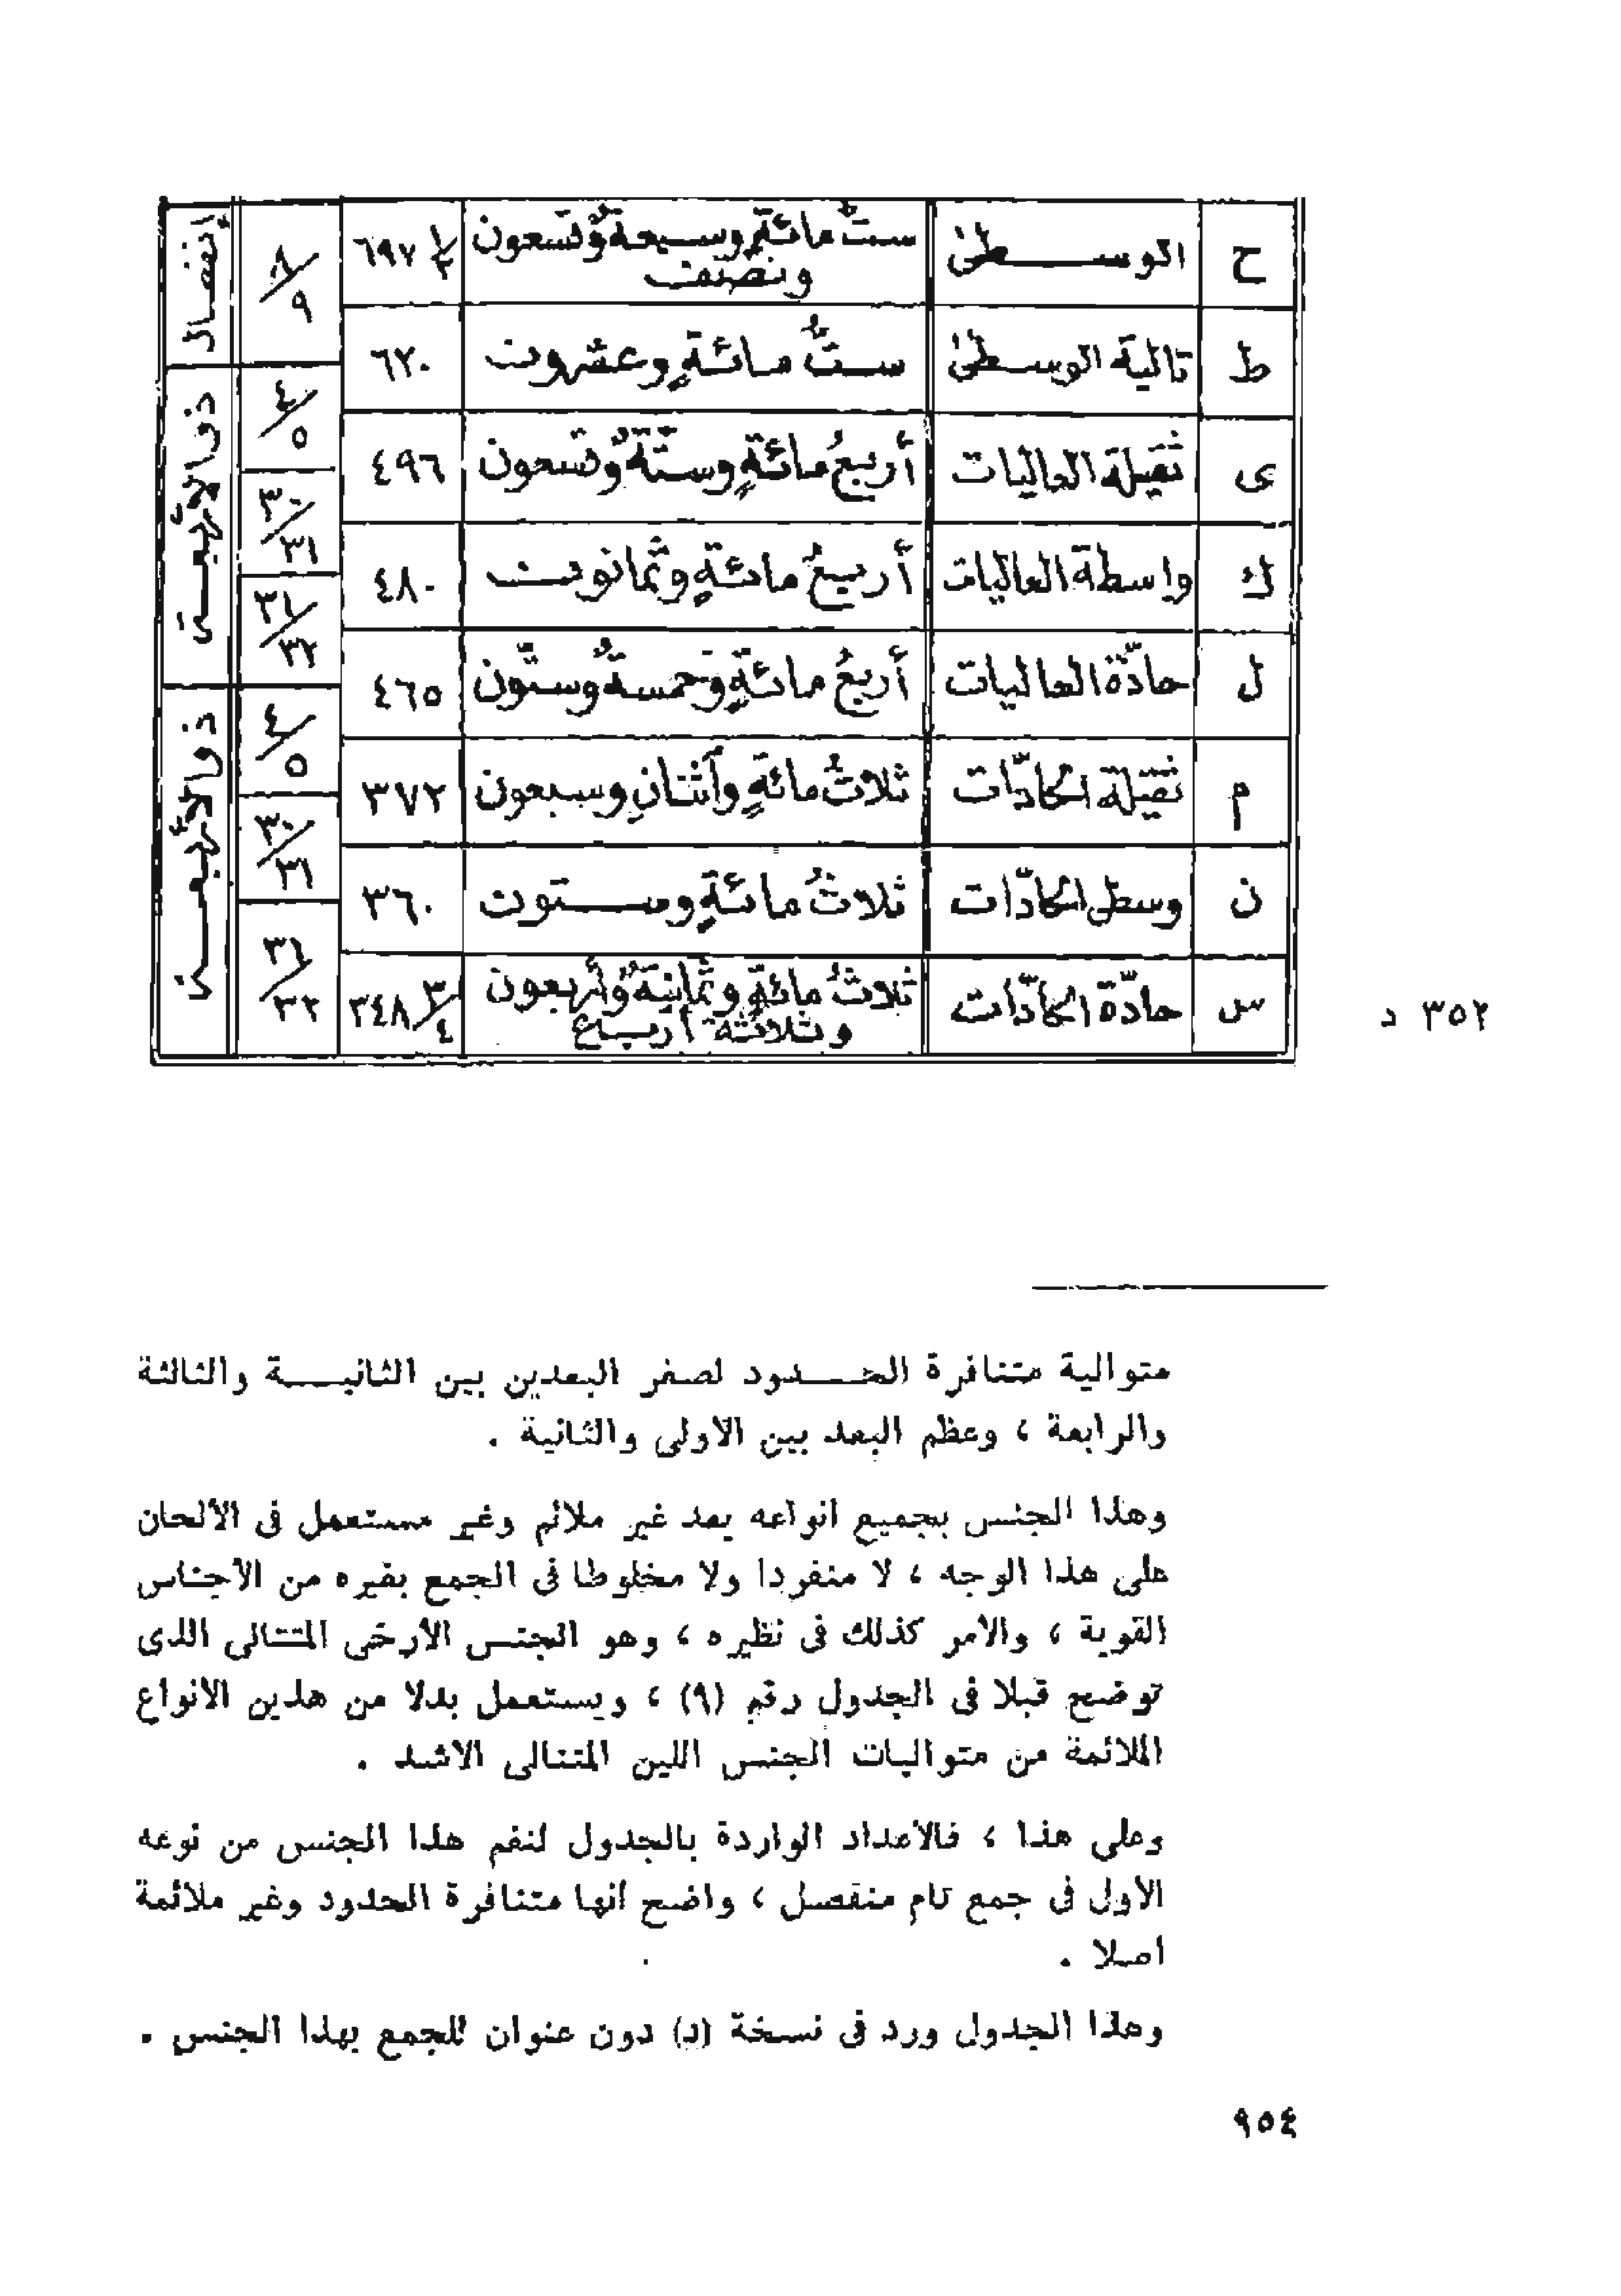 ح الوسطى ستُّ مائةٍ وسبعةٌ وتسعون ونصف ٦٩٧ ١/٢
ط تالية الوسطى ستُّ مائةٍ وعشرون ٦٢٠
ى ثقيلة العاليات أربعُ مائةٍ وستّةٌ وتسعون ٤٩٦
ك واسطة العاليات أربعُ مائةٍ وثمانون ٤٨٠
ل حادّة العاليات أربعُ مائةٍ وخمسةٌ وستّون ٤٦٥
م ثقيلة الحادّات ثلاثُ مائةٍ وآثنانِ وسبعون ٣٧٢
ن وسطى الحادّات ثلاثُ مائةٍ وستون ٣٦٠
س حادّة الحادّات ثلاثُ مائةٍ وثمانيةٌ وأربعون وثلاثة أرباع ٣٤٨ ٣/٤
٨/٩
٤/٥
٣٠/٣١
٣١/٣٢
٤/٥
٣٠/٣١
٣١/٣٢
إنفصال
ذو الأربعة
ذو الأربعة
٣٥٢ د
متوالية متنافرة الحدود لصغر البعدين بين الثانية والثالثة
والرابعة ، وعظم البعد بين الأولى والثانية .
وهذا الجنس بجميع انواعه يعد غير ملائم وغير مستعمل فى الألحان
على هذا الوجه ، لا منفردا ولا مخلوطا فى الجمع بغيره من الأجناس
القوية ، والأمر كذلك فى نظيره ، وهو الجنس الأرخى المتتالى الذى
توضح قبلا فى الجدول رقم (٩) ، ويستعمل بدلا من هذين الأنواع
الملائمة من متواليات الجنس اللين المتتالى الأشد .
وعلى هذا ، فالأعداد الواردة بالجدول لنغم هذا الجنس من نوعه
الأول فى جمع تام منفصل ، واضح أنها متنافرة الحدود وغير ملائمة
اصلا .
وهذا الجدول ورد فى نسخة (د) دون عنوان للجمع بهذا الجنس .
٩٥٤